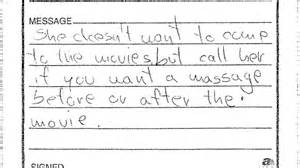 MESSAGE
She doesn't want to come
to the movies but call her
if you want a massage
before or after the
movie.
SIGNED